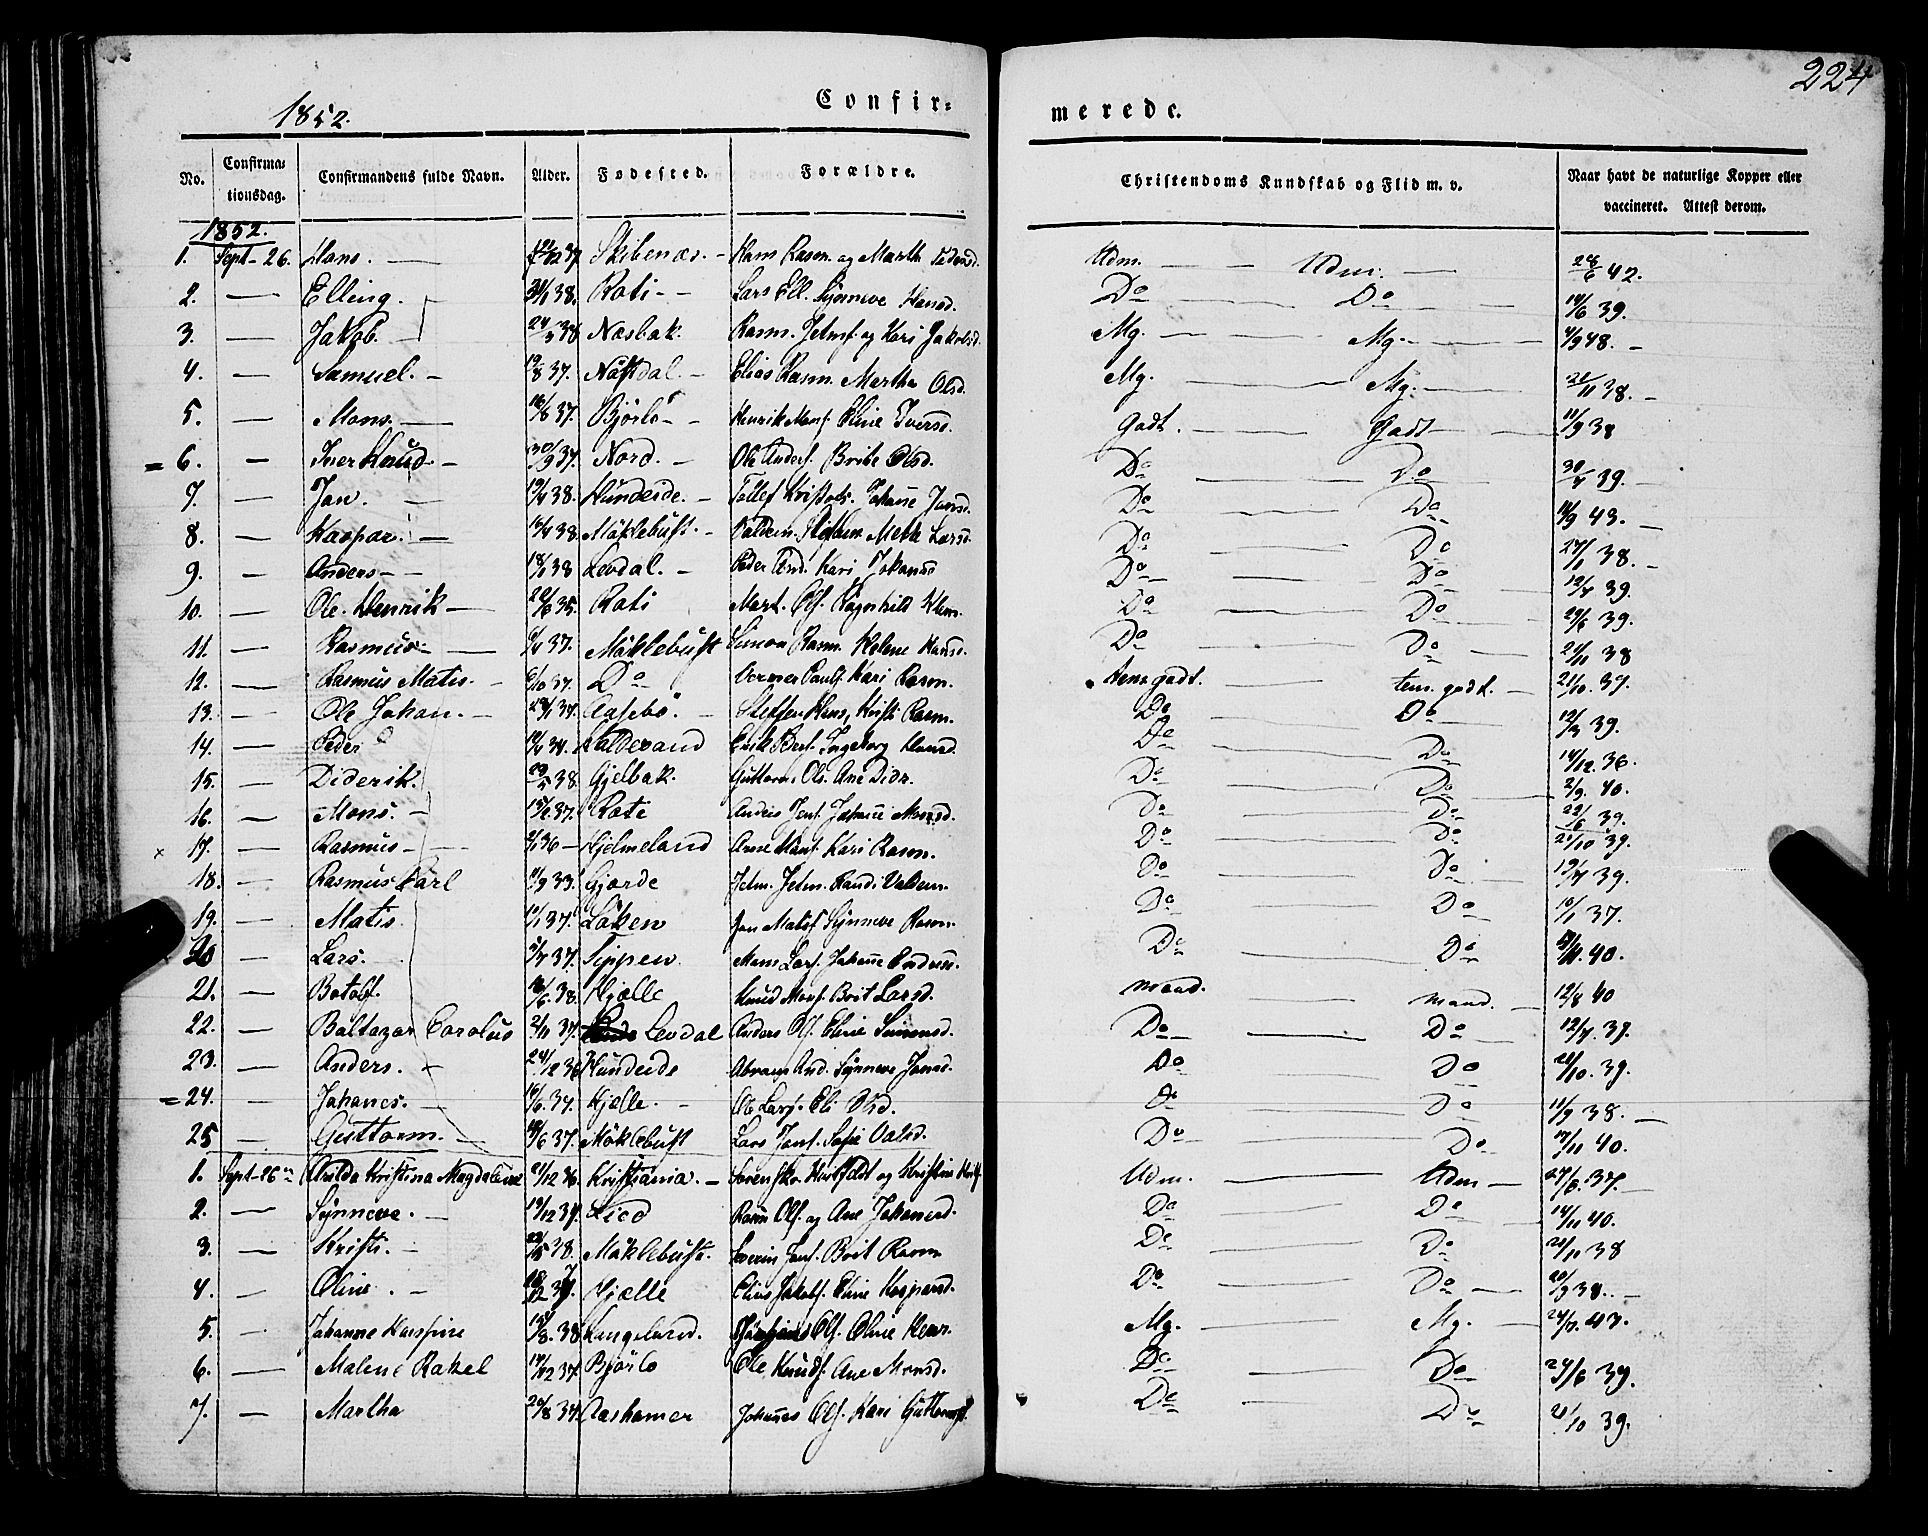 224
1852. Confir= merede.
No. Confirma= tionsdag. Confirmandens fulde Navn. Alder. Fødested. Forældre. Christendoms Kundskab og Flid m. v. Naar havt de naturlige Kopper eller vaccineret. Attest derom.
1852.
1. Sept - 26. Hans. — 37 Skibenæs. - Hans Rasm. og Marthe Udm. — Udm. — 28/6 42.
2. — Elling. 38. Roti - - Lars Ell. Synneve Hansd. Do — Do 14/6 39.
3. — Jakob. — 24/3 38 Næsbak. Rasm. Jetmf. og Kari Jakobsd. Mg. — Mg. — 4/9 48. -
4. — Samuel. - 19/8 37. Nøstdal. - Elias Rasm. Marthe Olsd. Mg. — Mg. — 21/11 38. -
5. — Mons. — 16/6 37. Bjørlo - - Henrik Monsf. Eline Iversd. Godt. — Godt — 11/9 38
= 6. — Iver Knud - - 30/9 37. Nord. - Ole Andersf. Brite Olsd. Do — Do 30/7 39.
7. — Jan. — 19/4 38. Hundeide. - Tollef Kristofs. Johanne Jansd. Do — Do 11/9 43. -
8. — Kaspar. — 16/4 38 Møklebust. - Valdem. Mette Larsd. Do — Do 27/1 38. -
9. — Anders - - 18/1 38 Levdal. - Peder And. Kari Johans Do — Do 12/7 39.
10. — Ole Henrik — 22/8 35. Roti Mart. Olf. Ragnhild Klem. Do — Do 29/6 39.
11. — Rasmus — 6/4 37. Møklebust Simon Rasm. Helene Hansd. Do — Do — 21/11 38
12. — Rasmus Matis. - 6/10 37. Do Verner Paulf. Kari Rasm. tem. godt. — tem. godt. - 21/10. 37.
13. — Ole Johan. — 37. Aasebø. - Steffen Hans, Kristi Rasm. Do — Do — 12/3 39.
14. — Peder 37. Valdersund Erik Berf. Ingeborg Hansd. Do — Do 14/12. 36.
15. — Diderik. 38. Gjelbak. Guttorm. Ols. Ane Didr. Do — Do — 2/9. 40.
16. — Mons. - 15/2. 37. Rote Anders Jenf. Johanne Monsd. Do — Do 22/6 39.
x 17. — Rasmus - — 2/1 36 - Hjelmeland Arne Hansf. Kari Rasm. Do — Do 21/10 39.
18. — Rasmus Karl 11/9 33 Gjørde Jetm. Jetm. Randi Valdem. Do — Do — 19/7 39.
19. — Matis. 10/1 37. Løken Jan Matsf. Synneve Rasm. Do — Do — 10/1 37.
20 — Lars. — 5/7 37. Sippen. Mons Larf. Johanne Do — Do 40.
21. — Botolf. 38. Hjelle Knud Monsf. Brit Larsd. maad. — maad. - 12/8 40
22. — Baltazar Carolus 2/11 37. Levdal Anders Olf. Eline Simonsd. Do — Do — 12/7. 39.
23. — Anders. 24/12 36 Hundeide Abram And. Synneve Jansd. Do — Do 21/10. 39.
= 24. — Johanes. — 16/6. 37. Hjelle. - Ole Larf. Eli Olsd. Do — Do 11/9 38. -
25 — Guttorm. - 18/6 37. Møklebust Lars Janf. Sofie Do — Do. 17/11 40.
1. Sept - 26 Kristina Magdalene 21/12 36. Kristiania. - og Kristine Udm. — Udm — 27/8. 37. -
2. — Synneve. - 19/12 37. Lied Rasm Olf. og Ane Johanesd. Do — Do 14/11 40.
3. — Kristi. — 22/5 38. Møklebust. Severin Janf. Brit Rasm Do — Do 21/11 38
4. — Oline. - 37. Hjelle Elias Jakobf. Eline Kaspersd. Do — Do — 20/9 38. -
5. — Johanne Kaspine 15/3. 38 Langeland. Olf. Oline Henr. Mg. — Mg. — 24/7. 43.
6. — Malene Rakel 19/12 37. Bjørlo Ole Knudf. Ane Monsd. Do — Do 27/6 39.
7. — Martha 29/8 37. Aashamer Johannes Olf. Kari Guttormsd. Do — Do 21/10 39.